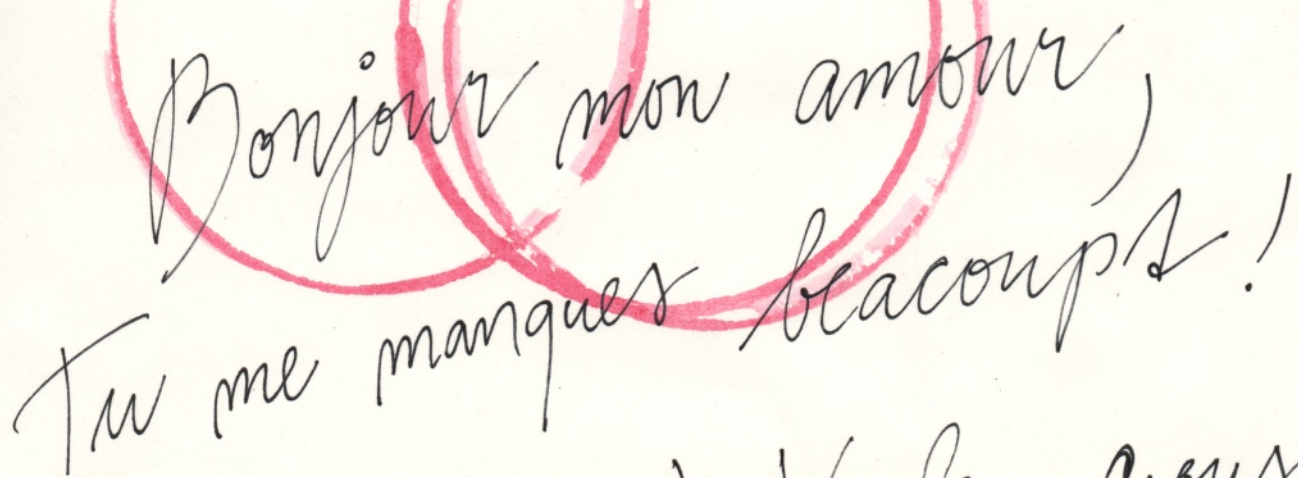 Bonjour mon amour,
Tu me manques beacoups!